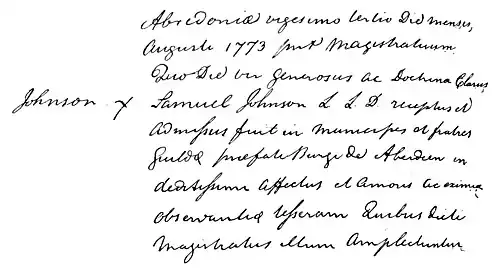 Abredoniæ vigesimo tertio Die mensis
Augusti 1773 Magistratuum
Quo Die vir generosus ac Doctrina Clarus
Johnson x Samuel Johnson L L D receptus et
admissus fuit in municipes et fratres
Guildæ præfate Burge de Aberdeen in
deditissimi affectus et amoris ac eximiæ
observantiæ tesseram Quibus dicti
Magistratus illum Amplectuntur